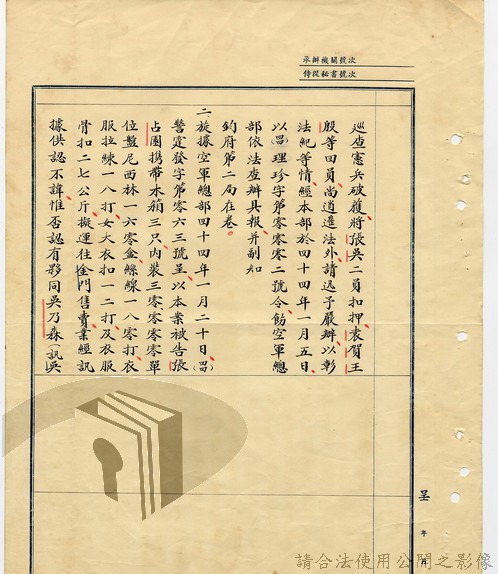 承辦機關號次
侍從秘書號次
巡查憲兵破獲將張吳二員扣押袁賀王
殷等四員尚逍遙法外請迅予嚴辦以彰
法紀等情經本部於四十四年一月五日
以(四四)理珍字第零零零二號令飭空軍總
部依法查辦具報并副知
鈞府第二局在卷。
二、旋據空軍總部四十四年一月二十日(四四)
警定發字第零六三號呈以本案被告張
占園携帶木箱三只內裝三零零零零單
位盤尼西林一六零盒絲線一八零打衣
服拉練一八打女大衣扣一二打及衣服
骨扣二七公斤擬運往金門售賣業經訊
據供認不諱惟否認有夥同吳乃森(訊吳
呈
年
月
請合法使用公開之影像